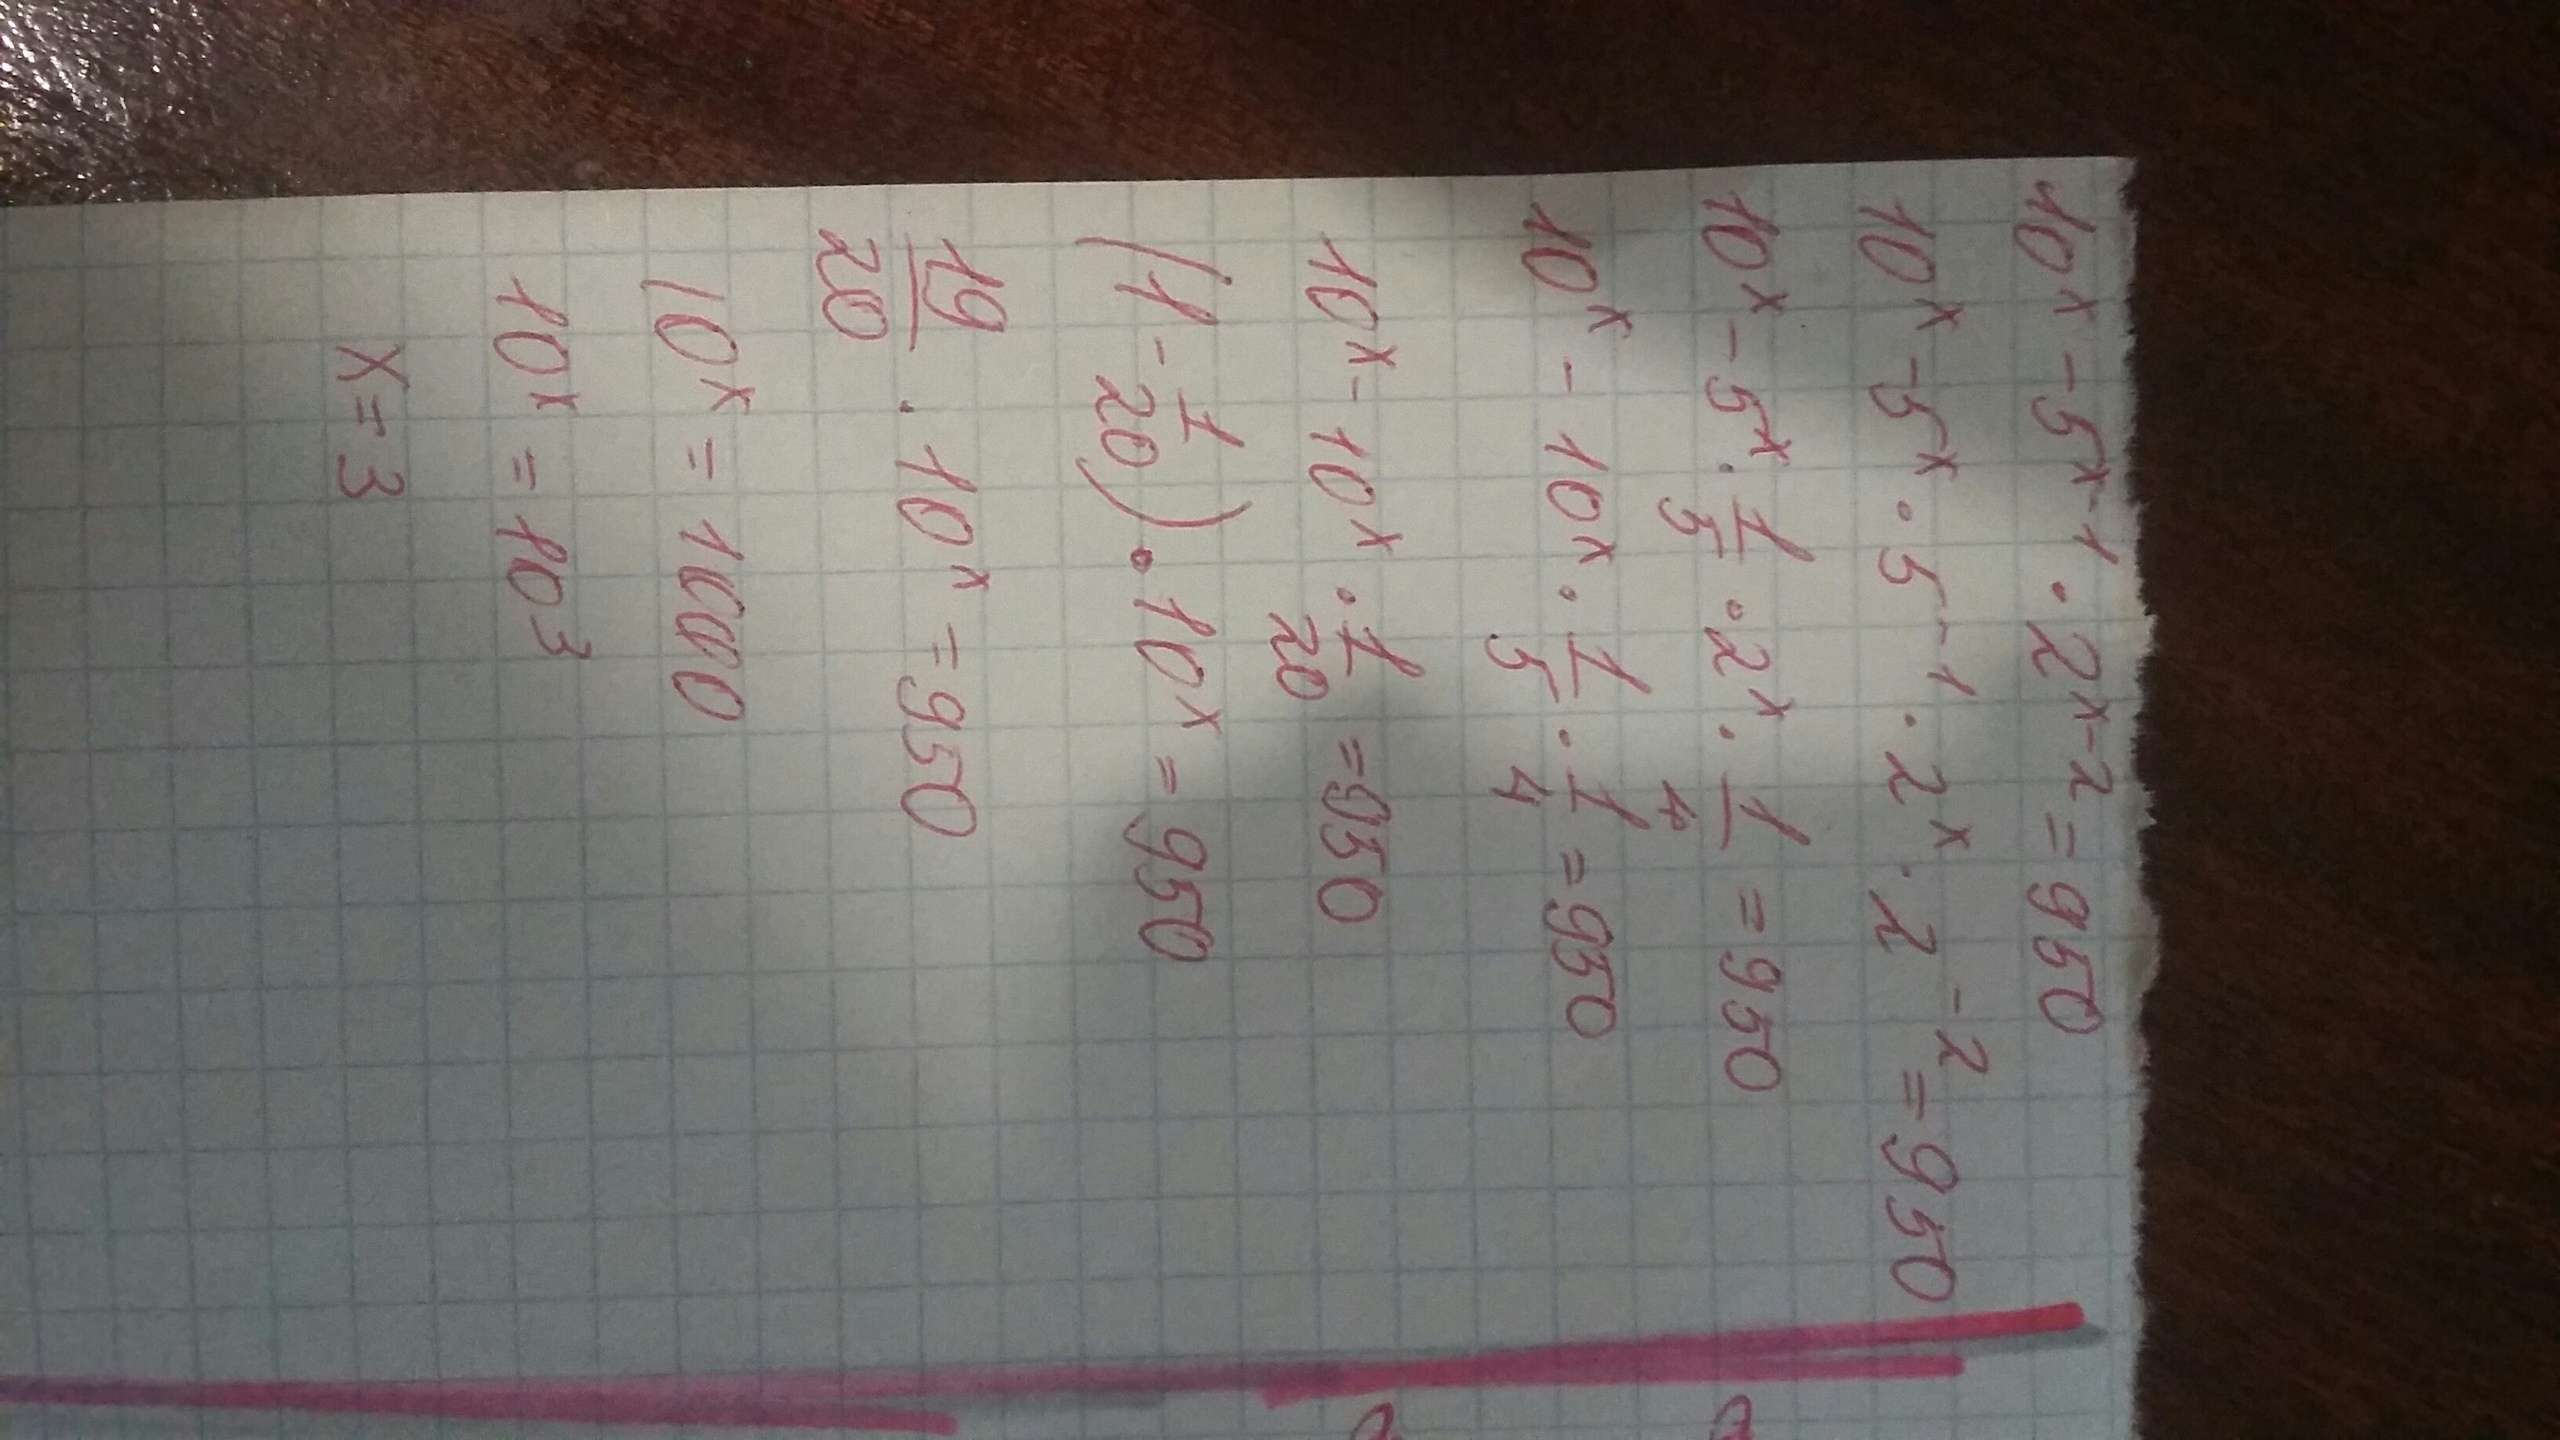 10^x - 5^{x-1} · 2^{x-2} = 950
10^x - 5^x · 5^{-1} · 2^x · 2^{-2} = 950
10^x - 5^x · 1/5 · 2^x · 1/4 = 950
10^x - 10^x · 1/5 · 1/4 = 950
10^x - 10^x · 1/20 = 950
(1 - 1/20) · 10^x = 950
19/20 · 10^x = 950
10^x = 1000
10^x = 10^3
x = 3